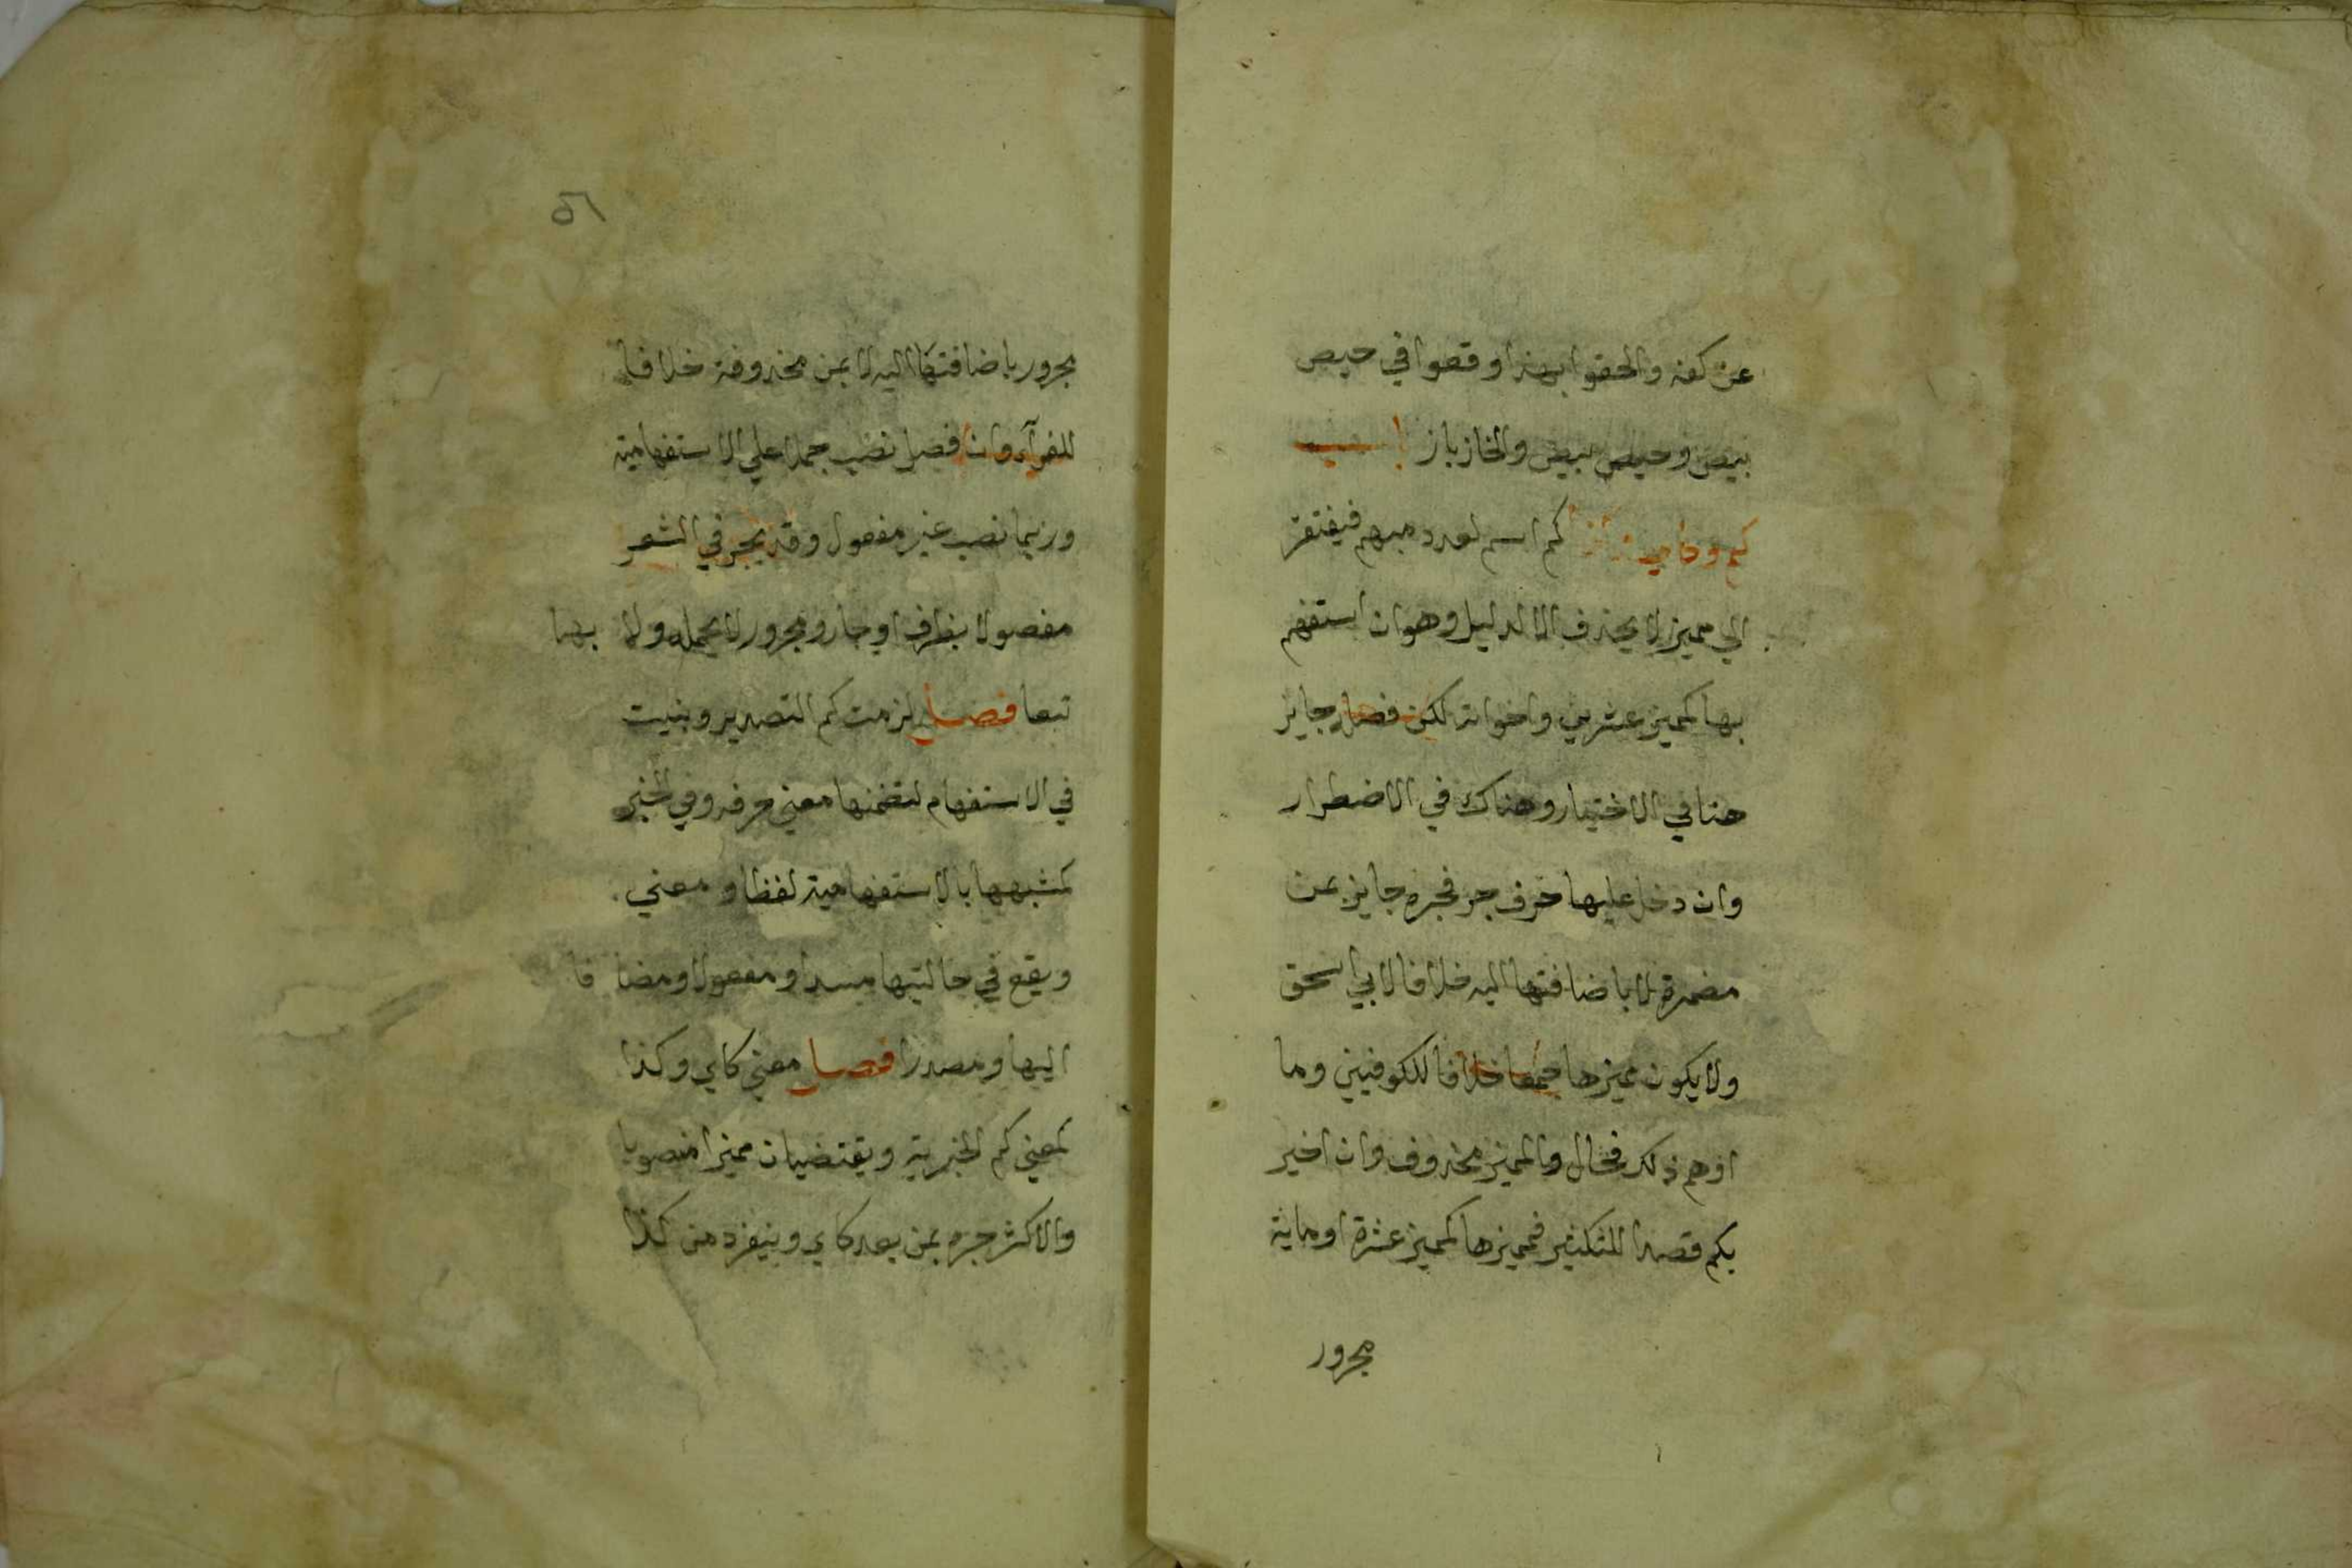 عن كفة والحقوا بهذا وقعوا في حيص
بيص وحيص بيص والخازباز
كم وكاين وكذا كم اسم لعدد مبهم فيفتقر
الي مميز لا يحذف الا لدليل وهو ان استفهم
بها كمميز عشرين واخواته لكن فصله جايز
هنا في الاختيار وهناك في الاضطرار
وان دخل عليها حرف جر فجره جايز بمن
مضمرة لا باضافتها اليه خلافا لابي اسحق
ولا يكون مميزها جمعا خلافا للكوفيين وما
اوهم ذلك فحال والمميز محذوف وان اخبر
بكم قصدا للتكثير فمميزها كمميز عشرة او ماية
مجرور
٥٦
مجرور باضافتها اليه لا بمن محذوفة خلافا
للفرآء وان فصل نصب حملا علي الاستفهامية
وربما نصب غير مفصول وقد يجر في الشعر
مفصولا بظرف او جار ومجرور لا بجملة ولا بهما
تبعا فصل لزمت كم التصدير وبنيت
في الاستفهام لتضمنها معني حرفه وفي الخبر
لشبهها بالاستفهامية لفظا ومعني
ويقع في حالتيها مبتدا ومفعولا ومضافا
اليها ومصدرا فصل معني كاي وكذا
كمعني كم الخبرية ويقتضيان مميزا منصوبا
والاكثر جره بمن بعد كاي وينفرد من كذا